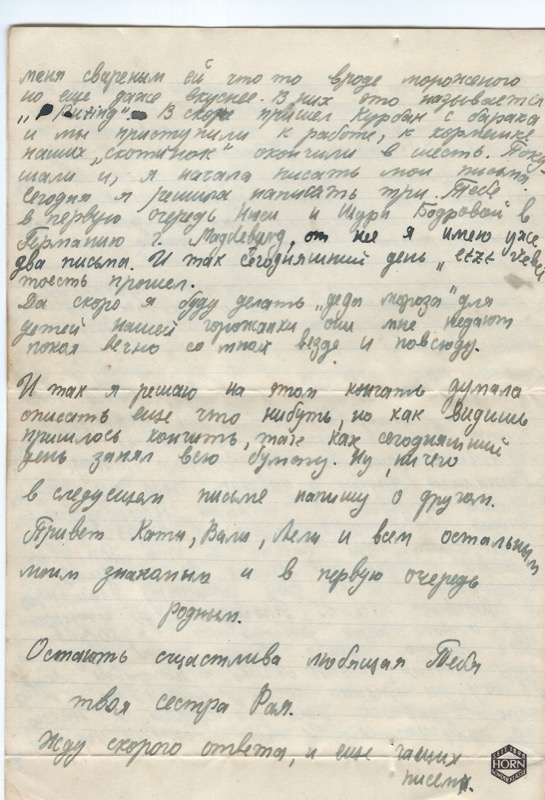 меня свареным ей что то вроде мороженого
но еще даже вкуснее. В них это называется
В скоре пришел Курбан с барака
и мы приступили к работе, к кормешке
наших „скотинок" окончили в шесть. Поку-
шали и, я начала писать мои письма
Сегодня я решила написать три. Тебе
в первую очередь Нюси и Шури Бодровой в
Германию г. Magdeburg, от нее я имею уже
два письма. И так сегодняшний день „etzt
тоесть прошел.
Да скоро я буду делать „деда мороза" для
детей нашей горожанки они мне недают
покоя вечно со мной везде и повсюду.
И так я решаю на этом кончать думала
описать еще что нибуть, но как видишь
пришлось кончить, так как сегодняшний
день занял всю бумагу. Ну, ничего
в следусщем письме напишу о другом.
Привет Кати, Вали, Лели и всем остальным
моим знакомым и в первую очередь
родным.
Остаюсь счастлива любящая Тебя
твоя сестра Рая.
Жду скорого ответа, и еще чащих
писем.
HORN